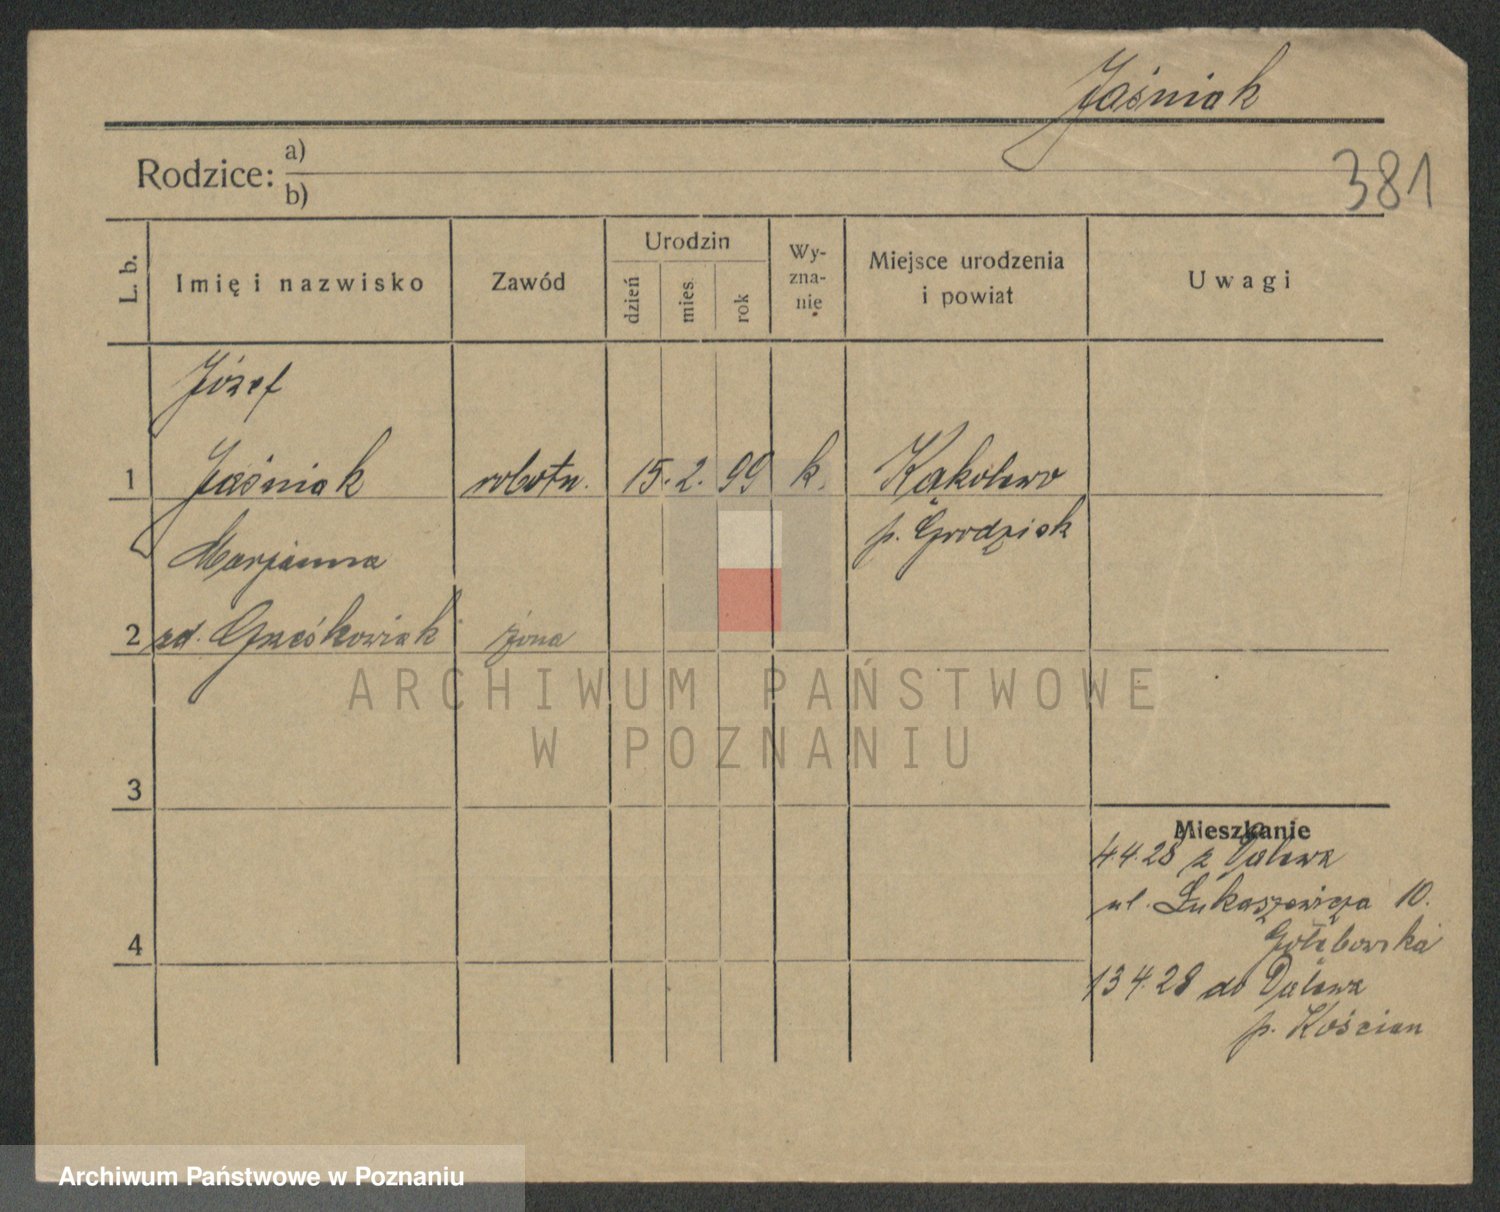 Jaśniak
381
Rodzice: a)
b)
L. b.
Imię i nazwisko
Zawód
Urodzin
dzień
mies.
rok
Wy-
zna-
nie
Miejsce urodzenia
i powiat
Uwagi
Józef
1 Jaśniak robotn. 15. 2. 99 k. Kąkolewo
p. Grodzisk
Marjanna
2 zd. Grześkowiak żona
ARCHIWUM PAŃSTWOWE
W POZNANIU
3
Mieszkanie
4.4.28 z Dalewa
ul. Łukaszewicza 10.
Gołębowska
4
13 4.28 do Dalewa
p. Kościan
Archiwum Państwowe w Poznaniu